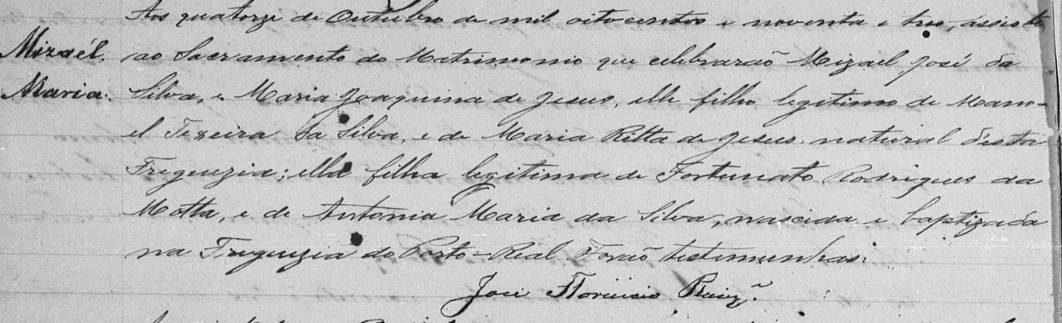 Aos quatorze de Outubro de mil oitocentos e noventa e tres, assisti
Mizaél. ao Sacramento do Matrimonio que celebrarão Mizael José da
Maria. Silva, e Maria Joaquina de Jesus, elle filho legitimo de Mano-
el Texeira da Silva, e de Maria Ritta de Jesus, natural desta
Freguezia; ella filha legitima de Fortunato Rodrigues da
Motta, e de Antonia Maria da Silva, nascida e baptizada
na Freguezia do Porto-Real. Forão testemunhas:
José Florencio